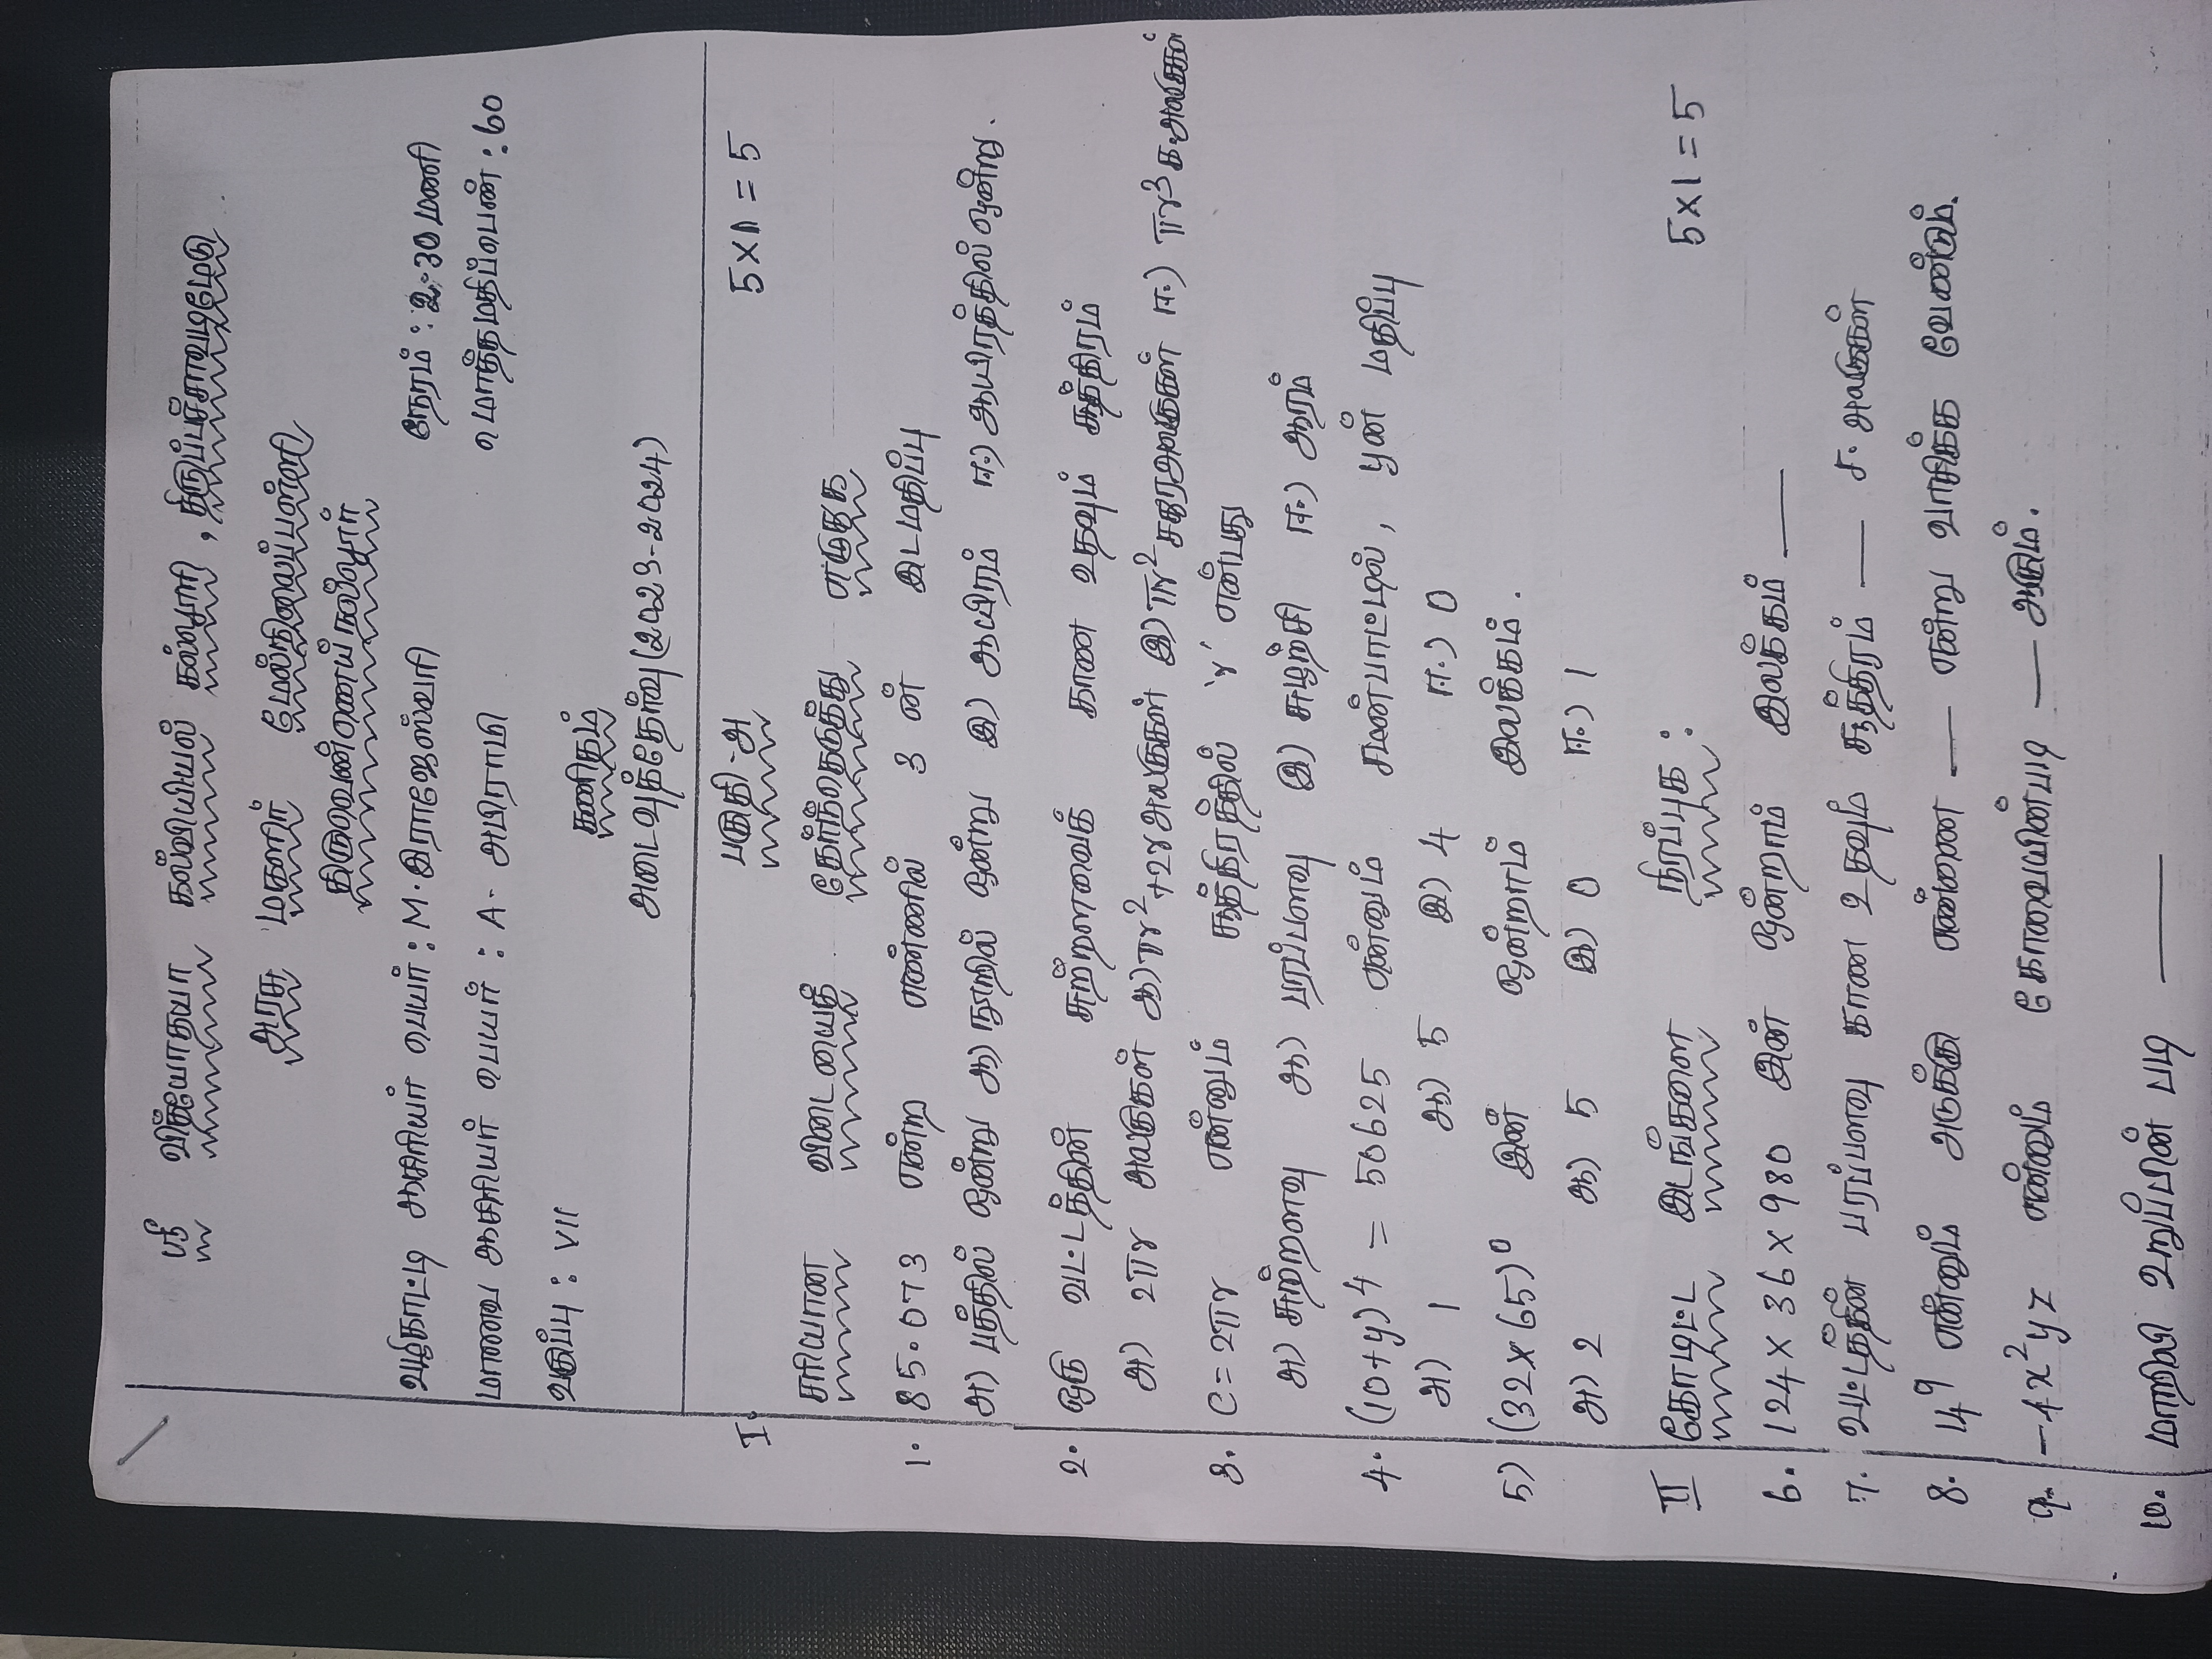 ஸ்ரீ வித்யோதயா கல்வியியல் கல்லூரி, திருப்பச்சாவடிமேடு
அரசு மகளிர் மேல்நிலைப்பள்ளி
திருவெண்ணெய்நல்லூர்
வழிகாட்டி ஆசிரியர் பெயர் : M. இராஜேஸ்வரி நேரம் : 2:30 மணி
மாணவ ஆசிரியர் பெயர் : A. அபிராமி மொத்தமதிப்பெண் : 60
வகுப்பு : VII
கணிதம்
அடைவுத்தேர்வு (2023-2024)
I. பகுதி-அ 5X1=5
சரியான விடையைத் தேர்ந்தெடுத்து எழுதுக
1. 85.073 என்ற எண்ணில் 3 ன் இடமதிப்பு
அ) பத்தில் ஒன்று ஆ) நூறில் ஒன்று இ) ஆயிரம் ஈ) ஆயிரத்தில் ஒன்று.
2. ஒரு வட்டத்தின் சுற்றளவைக் காண உதவும் சூத்திரம்
அ) 2πr அலகுகள் ஆ) πr²+2r அலகுகள் இ) πr² சதுரஅலகுகள் ஈ) πr³ க.அலகுகள்
3. C=2πr என்னும் சூத்திரத்தில் 'r' என்பது
அ) சுற்றளவு ஆ) பரப்பளவு இ) சுழற்சி ஈ) ஆரம்
4. (10+y)4 = 50625 என்னும் சமன்பாட்டில், yன் மதிப்பு
அ) 1 ஆ) 5 இ) 4 ஈ) 0
5) (32x65)⁰ இன் ஒன்றாம் இலக்கம்.
அ) 2 ஆ) 5 இ) 0 ஈ) 1
II கோடிட்ட இடங்களை நிரப்புக : 5X1=5
6. 124 X 36 X 980 இன் ஒன்றாம் இலக்கம் ___
7. வட்டத்தின் பரப்பளவு காண உதவும் சூத்திரம் ___ ச. அலகுகள்
8. 14⁹ என்னும் அடுக்கு எண்ணை ___ என்று வாசிக்க வேண்டும்.
9. -4x²yz என்னும் கோவையின்படி ___ ஆகும்.
10. மாறிலி உறுப்பின் படி ___